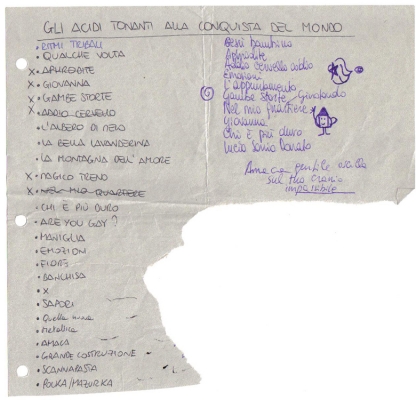 GLI ACIDI TONANTI ALLA CONQUISTA DEL MONDO
• RITMI TRIBALI
• QUALCHE VOLTA
X • APHRODITE
X • GIOVANNA
X • GAMBE STORTE
X • ADDIO CERVELLO
• L'ALBERO DI MELO
• LA BELLA LAVANDERINA
• LA MONTAGNA DELL'AMORE
X • MAGICO TRENO
X • NEL MIO QUARTIERE
• CHI È PIÙ DURO
• ARE YOU GAY?
• MANIGLIA
• EMOZIONI
• FIORE
• BANCHISA
• X
• SAPORI
• Quella
• Metallica
• AMACA
• GRANDE COSTRUZIONE
• SCANNAPASTA
• POLKA/MAZURKA
bambino
Aphrodite
Addio cervello addio
Emozioni
L'appuntamento
Gambe Storte
Nel mio quartiere
Giovanna
Chi è più duro
Lucio sono
gentile
sul tuo cranio